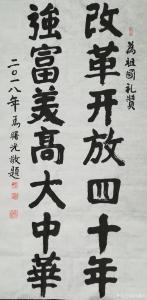 為祖國礼赞
改革开放四十年
強富美高大中華
二〇一八年馬曙光敬題